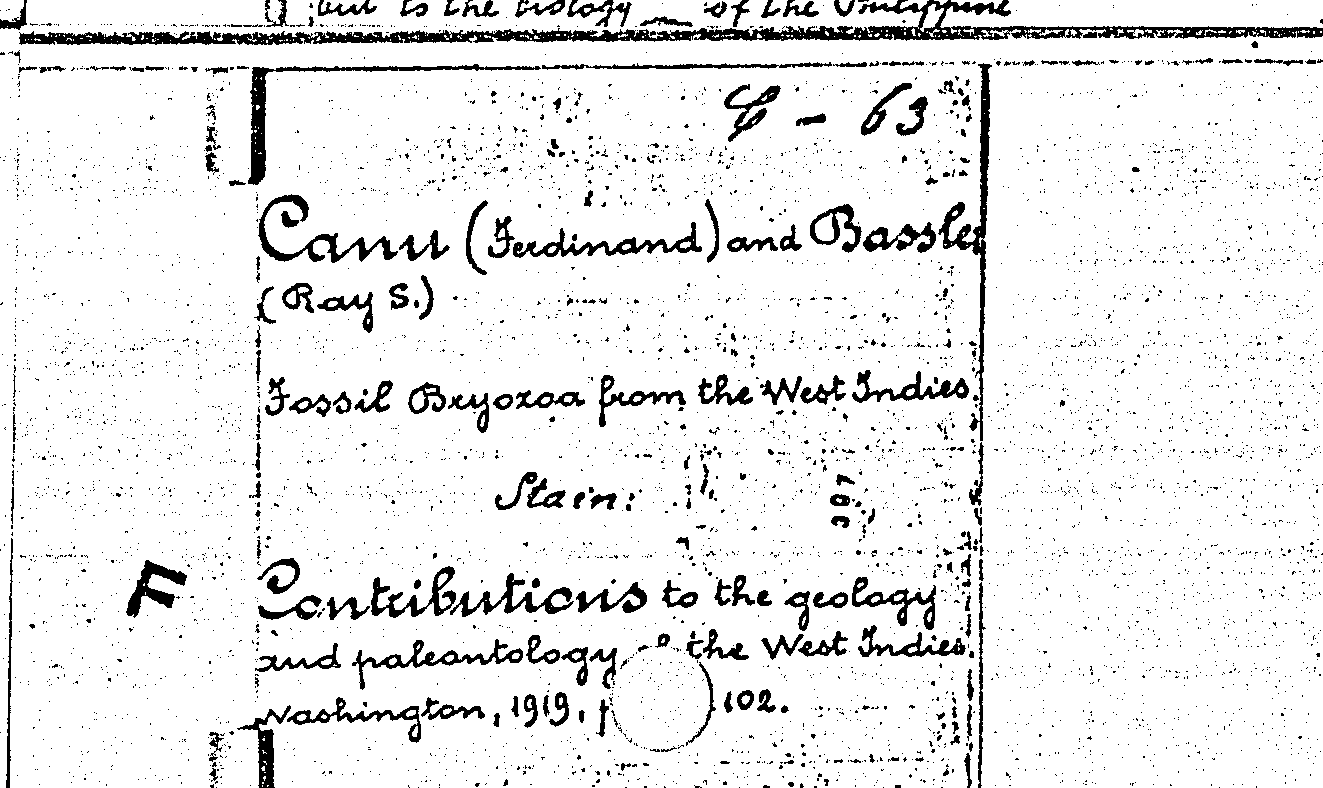 but to the biology of the Philippine
C - 63
Canu (Ferdinand) and Bassler
(Ray S.)
Fossil Bryozoa from the West Indies.
Stain:
307
F
Contributions to the geology
and paleontology of the West Indies.
Washington, 1919, p 102.